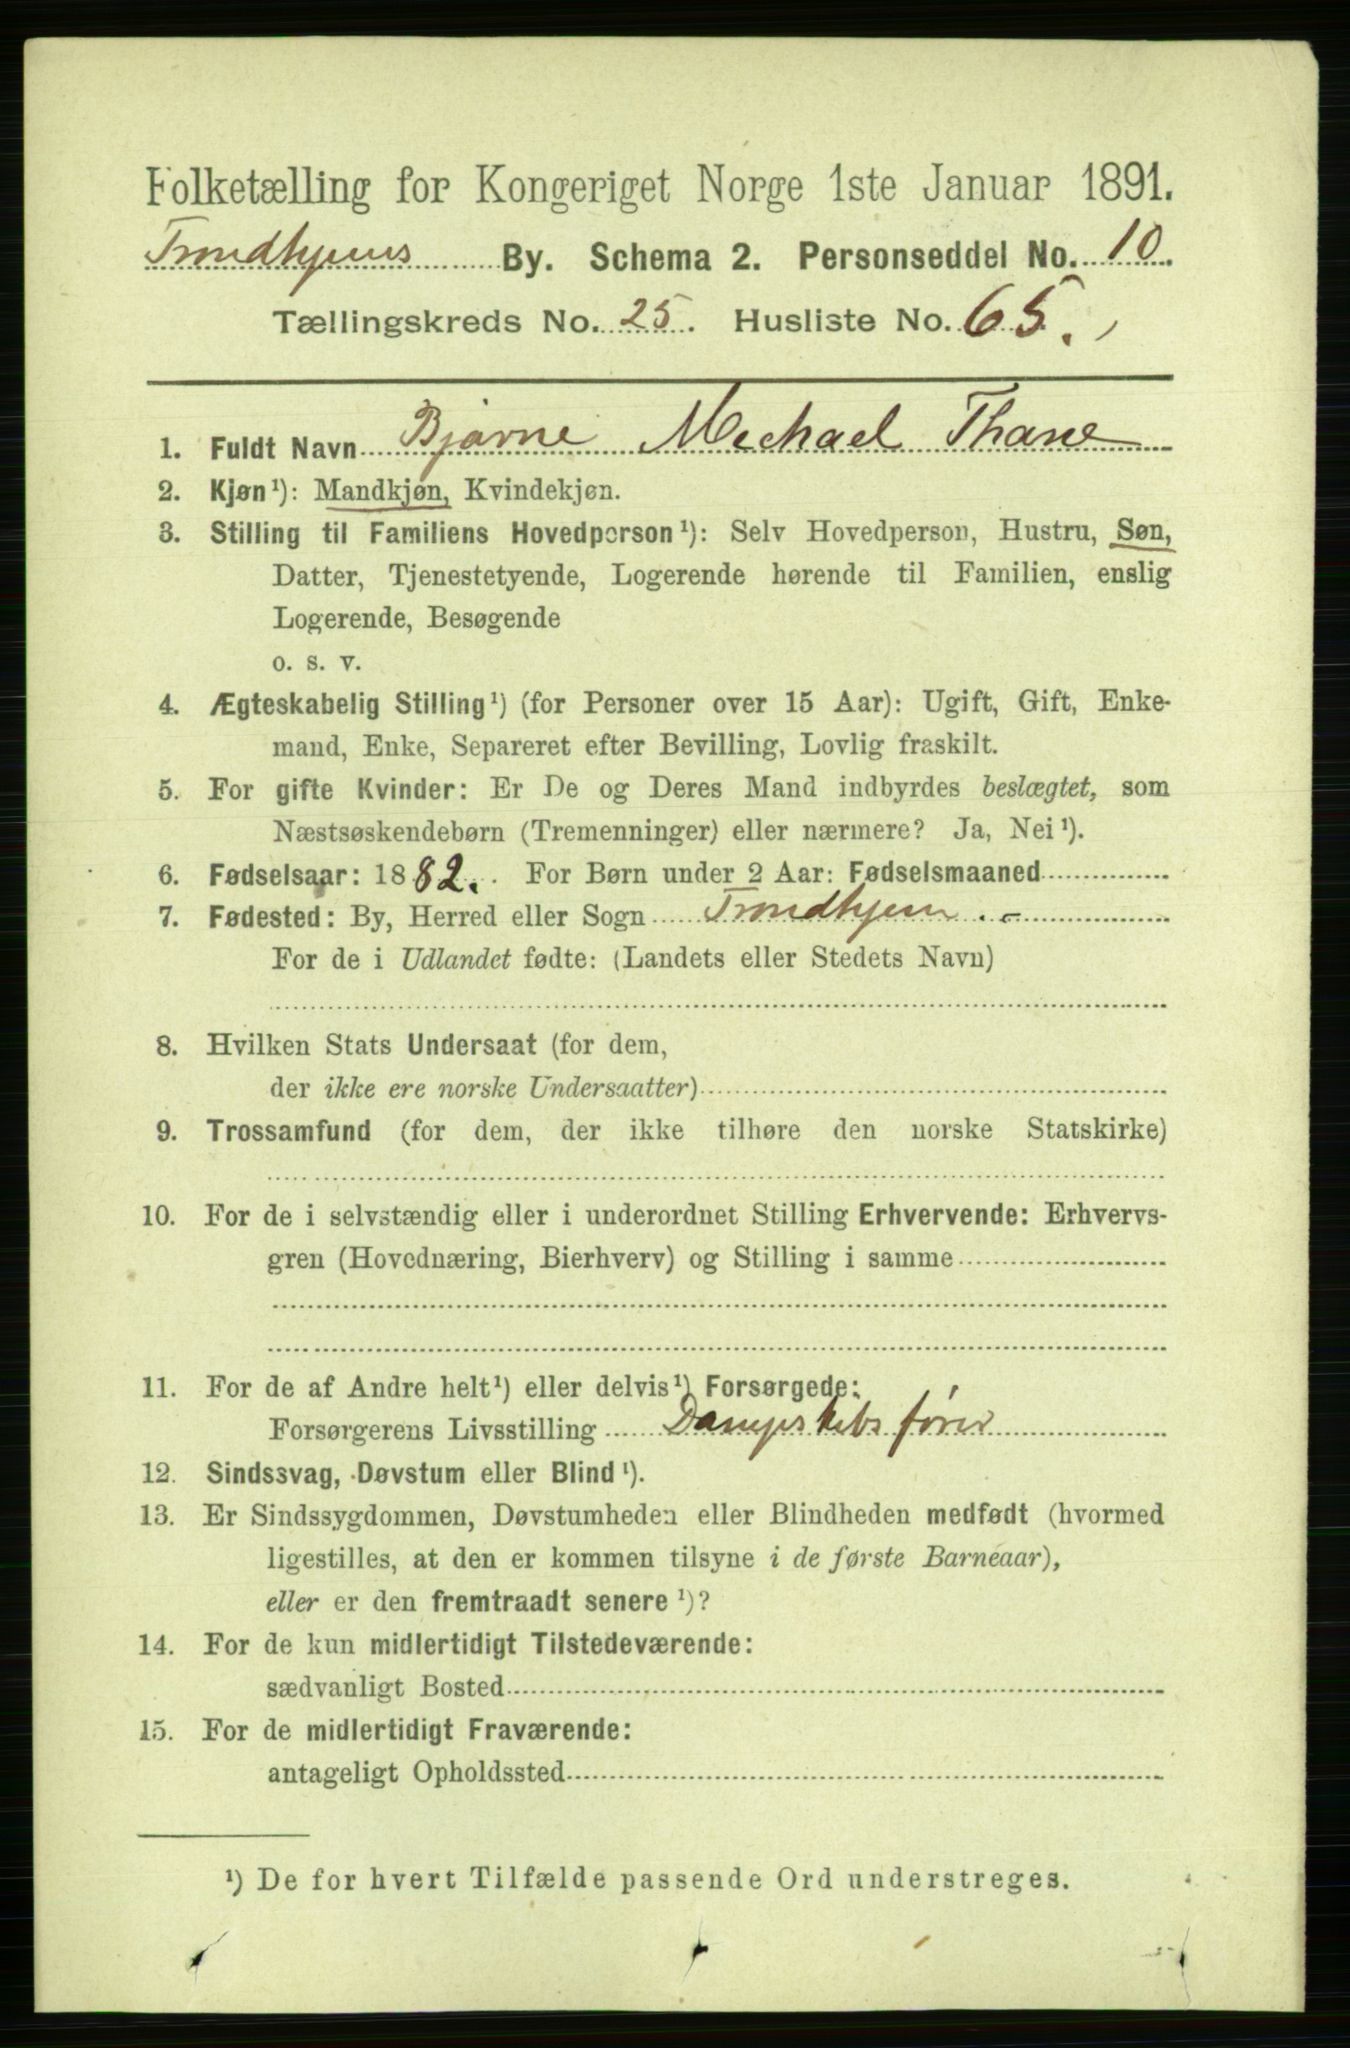 Folketælling for Kongeriget Norge 1ste Januar 1891.
Trondhjems By. Schema 2. Personseddel No. 10.
Tællingskreds No. 25. Husliste No. 65.
1. Fuldt Navn Bjarne Mechael Thane
2. Kjøn¹): Mandkjøn, Kvindekjøn.
3. Stilling til Familiens Hovedperson¹): Selv Hovedperson, Hustru, Søn,
Datter, Tjenestetyende, Logerende hørende til Familien, enslig
Logerende, Besøgende
o. s. v.
4. Ægteskabelig Stilling¹) (for Personer over 15 Aar): Ugift, Gift, Enke-
mand, Enke, Separeret efter Bevilling, Lovlig fraskilt.
5. For gifte Kvinder: Er De og Deres Mand indbyrdes beslægtet, som
Næstsøskendebørn (Tremenninger) eller nærmere? Ja, Nei¹).
6. Fødselsaar: 1882. For Børn under 2 Aar: Fødselsmaaned
7. Fødested: By, Herred eller Sogn Trondhjem.-
For de i Udlandet fødte: (Landets eller Stedets Navn)
8. Hvilken Stats Undersaat (for dem,
der ikke ere norske Undersaatter)
9. Trossamfund (for dem, der ikke tilhøre den norske Statskirke)
10. For de i selvstændig eller i underordnet Stilling Erhvervende: Erhvervs-
gren (Hovednæring, Bierhverv) og Stilling i samme
11. For de af Andre helt¹) eller delvis¹) Forsørgede:
Forsørgerens Livsstilling Dampskibsfører
12. Sindssvag, Døvstum eller Blind¹).
13. Er Sindssygdommen, Døvstumheden eller Blindheden medfødt (hvormed
ligestilles, at den er kommen tilsyne i de første Barneaar),
eller er den fremtraadt senere¹)?
14. For de kun midlertidigt Tilstedeværende:
sædvanligt Bosted
15. For de midlertidigt Fraværende:
antageligt Opholdssted
¹) De for hvert Tilfælde passende Ord understreges.